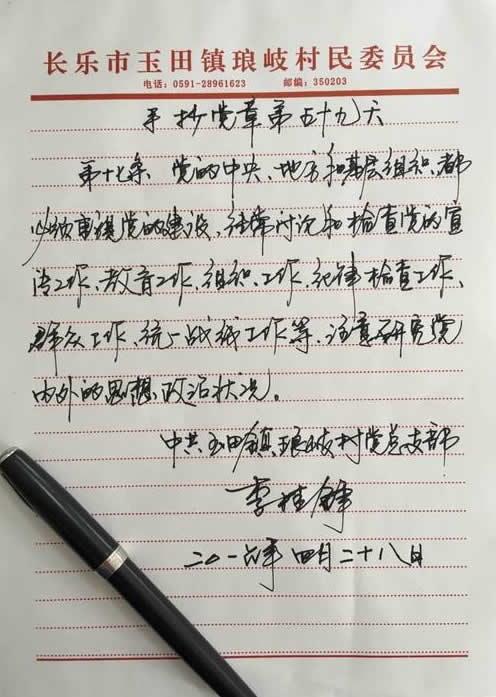 长乐市玉田镇琅岐村民委员会
电话：0591-28961623 邮编：350203
手抄党章第五十九天
第十七条 党的中央、地方和基层组织，都
必须重视党的建设，经常讨论和检查党的宣
传工作、教育工作、组织工作、纪律检查工作、
群众工作、统一战线工作等，注意研究党
内外的思想政治状况。
中共玉田镇琅岐村党总支部
李桂
二〇一六年四月二十八日